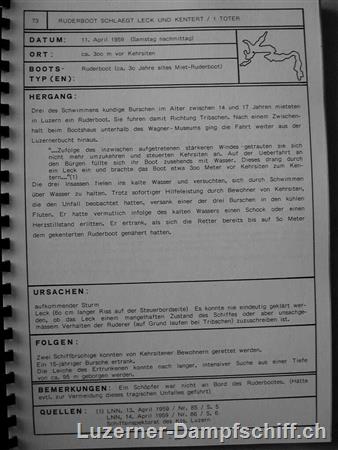 73 RUDERBOOT SCHLAEGT LECK UND KENTERT / 1 TOTER
DATUM: 11. April 1959 (Samstag nachmittag)
ORT: ca. 300 m vor Kehrsiten
BOOTS-TYP(EN): Ruderboot (ca. 30 Jahre altes Miet-Ruderboot)
HERGANG:
Drei des Schwimmens kundige Burschen im Alter zwischen 14 und 17 Jahren mieteten
in Luzern ein Ruderboot. Sie fuhren damit Richtung Tribschen. Nach einem Zwischen-
halt beim Bootshaus unterhalb des Wagner-Museums ging die Fahrt weiter aus der
Luzernerbucht hinaus.
"...Zufolge des inzwischen aufgetretenen stärkeren Windes getrauten sie sich
nicht mehr umzukehren und steuerten Kehrsiten an. Auf der Ueberfahrt an
den Bürgen füllte sich ihr Boot zusehends mit Wasser. Dieses drang durch
ein Leck ein und brachte das Boot etwa 300 Meter vor Kehrsiten zum Ken-
tern..."(1)
Die drei Insassen fielen ins kalte Wasser und versuchten, sich durch Schwimmen
über Wasser zu halten. Trotz sofortiger Hilfeleistung durch Bewohner von Kehrsiten,
die den Unfall beobachtet hatten, versank einer der drei Burschen in den kühlen
Fluten. Er hatte vermutlich infolge des kalten Wassers einen Schock oder einen
Herzstillstand erlitten. Er ertrank, als sich die Retter bereits bis auf 50 Meter
dem gekenterten Ruderboot genähert hatten.
URSACHEN:
aufkommender Sturm
Leck (60 cm langer Riss auf der Steuerbordseite) Es konnte nie eindeutig geklärt wer-
den, ob das Leck einem mangelhaften Zustand des Schiffes oder aber unsachge-
mässem Verhalten der Ruderer (auf Grund laufen bei Tribschen) zuzuschreiben ist.
FOLGEN:
Zwei Schiffbrüchige konnten von Kehrsitener Bewohnern gerettet werden.
Ein 15-jähriger Bursche ertrank.
Die Leiche des Ertrunkenen konnte nach langer, intensiver Suche aus einer Tiefe
von ca. 95 m geborgen werden.
BEMERKUNGEN: Ein Schöpfer war nicht an Bord des Ruderbootes. (Hätte
evtl. zur Vermeidung dieses tragischen Unfalles geführt)
QUELLEN: (1) LNN, 13. April 1959 / Nr. 85 / S. 5
LNN, 14. April 1959 / Nr. 86 / S. 6
Schiffsinspektorat des Kts. Luzern
Luzerner-Dampfschiff.ch